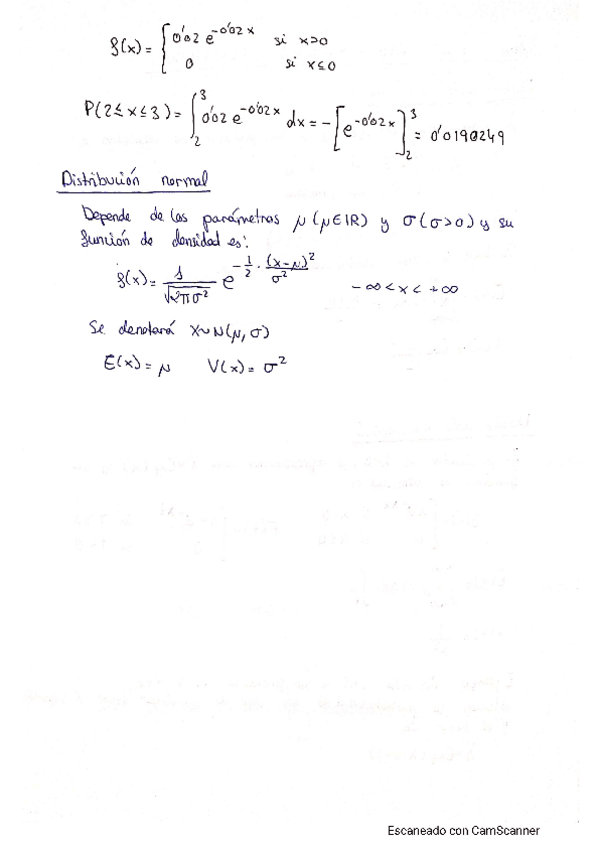 f(x) = { 0'02 e^{-0'02x} si x>0
0 si x≤0
P(2≤x≤3) = ∫_2^3 0'02 e^{-0'02x} dx = -[e^{-0'02x}]_2^3 = 0'0190249
Distribución normal
Depende de los parámetros μ (μ∈IR) y σ (σ>0) y su
función de densidad es:
f(x) = 1/√(2πσ²) e^{-1/2 · (x-μ)²/σ²} -∞ < x < +∞
Se denotará X~N(μ, σ)
E(x) = μ V(x) = σ²
Escaneado con CamScanner